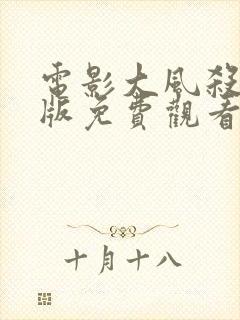 電影大風殺
版免費觀看
十月十八